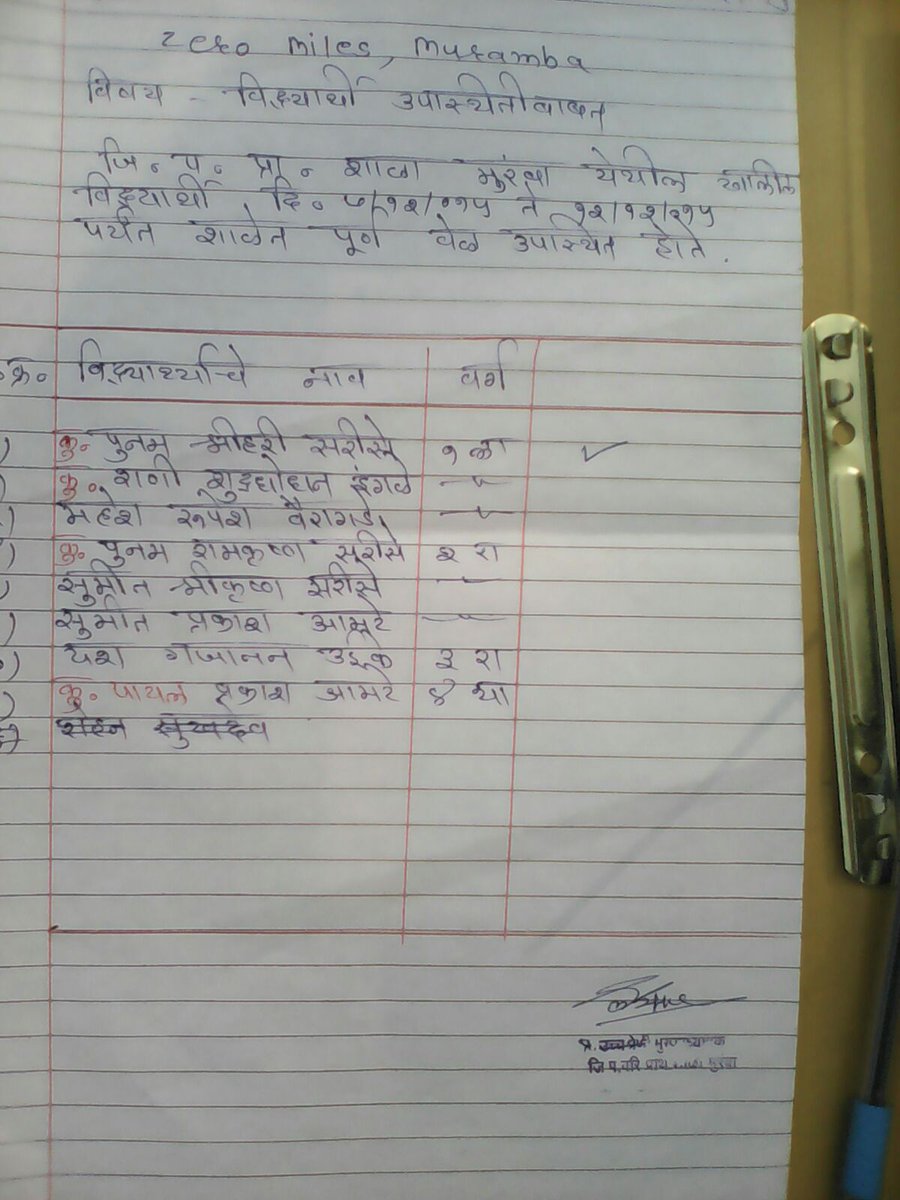 zero miles, muramba
विषय - विद्यार्थी उपास्थितीबाबत
जि. प. प्रा. शाळा मुरंबा येथील खालील
विद्यार्थी दि. ७/१२/२०१५ ते १२/१२/२१५
पर्यंत शाळेत पूर्ण वेळ उपस्थित होते.
क्र. विद्यार्थ्याचे नाव वर्ग
कु. पुनम श्रीहरी सरीसे १ ला ✓
कु. राणी शुद्धोधन इंगळे —〃—
महेश रुपेश वैरागडे —〃—
कु. पुनम रामकृष्ण सरीसे २ रा
सुमीत श्रीकृष्ण सरीसे —〃—
सुमीत प्रकाश आमटे —〃—
यश गजानन उईके ३ रा
कु. पायल प्रकाश आमटे ४ था
सुखदेव